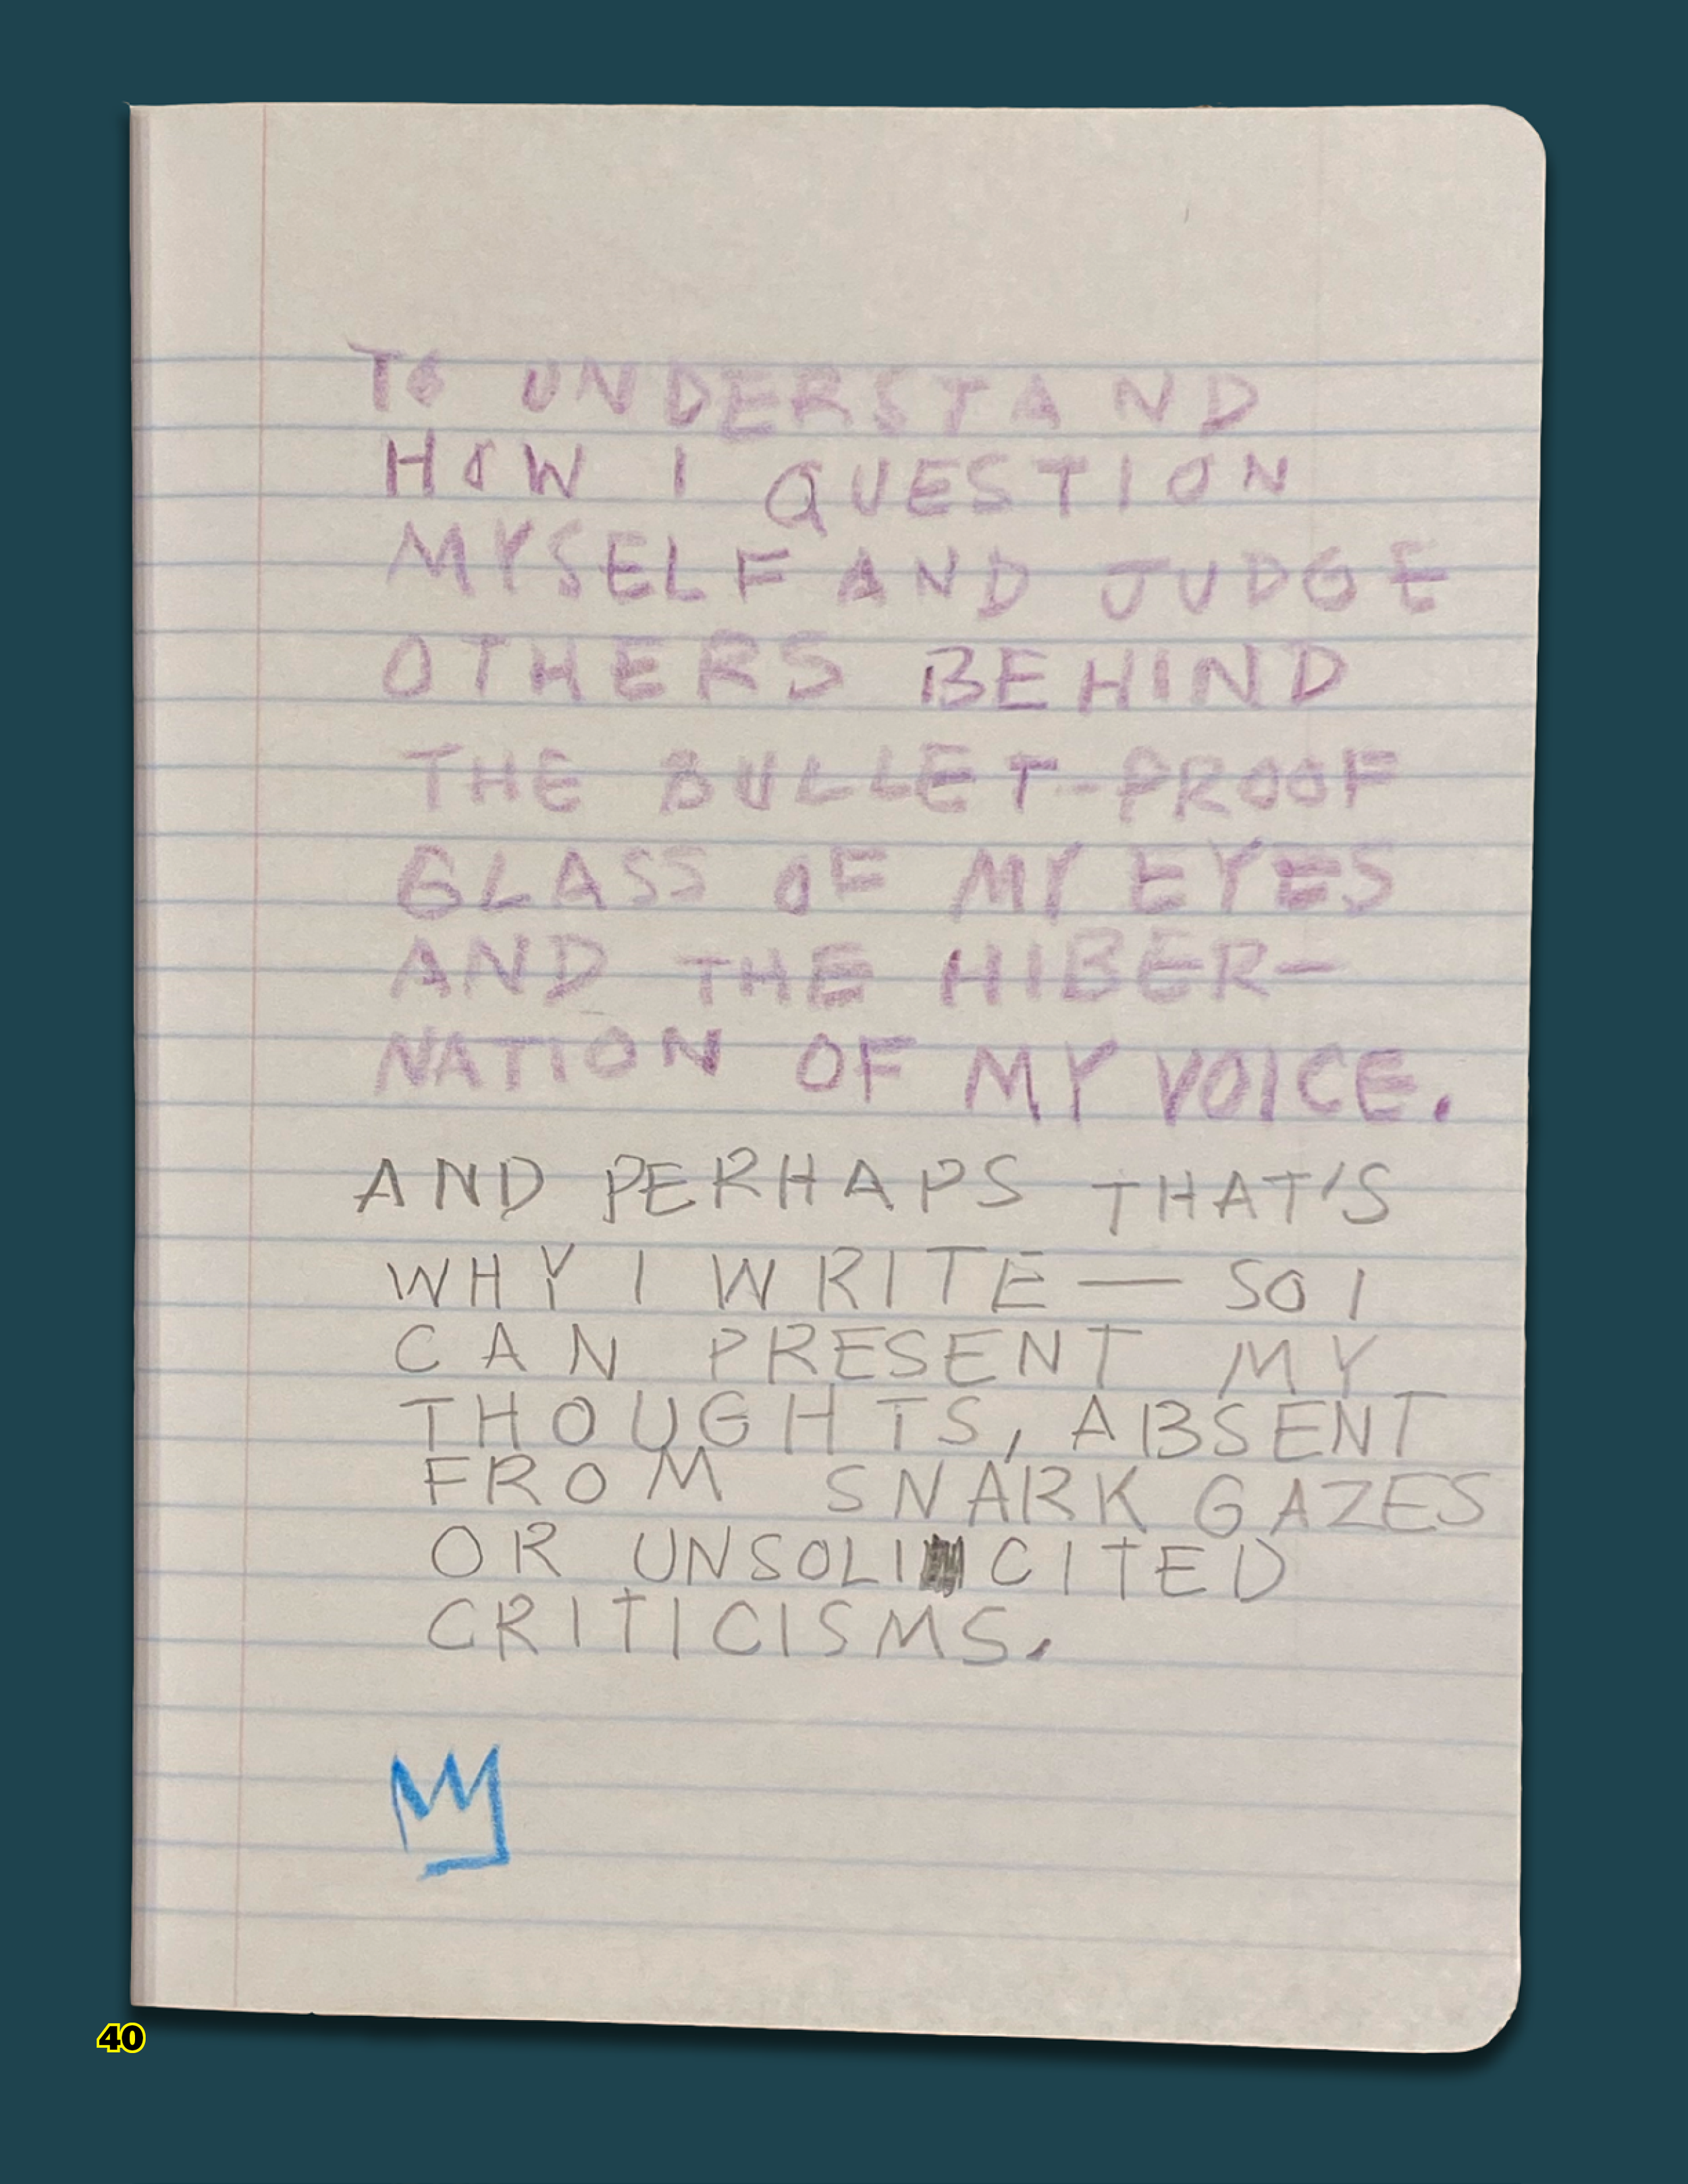 TO UNDERSTAND
HOW I QUESTION
MYSELF AND JUDGE
OTHERS BEHIND
THE BULLET-PROOF
GLASS OF MY EYES
AND THE HIBER-
NATION OF MY VOICE.
AND PERHAPS THAT'S
WHY I WRITE — SO I
CAN PRESENT MY
THOUGHTS, ABSENT
FROM SNARK GAZES
OR UNSOLICITED
CRITICISMS.
40